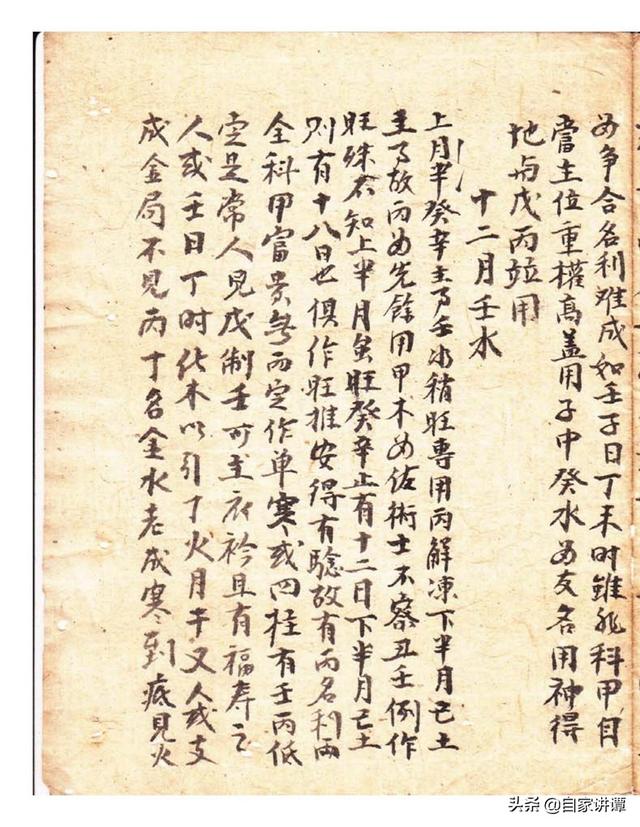 為争合名利难成如壬子日丁未时雖非科甲自
當主位重權高盖用子中癸水為友名用神得
地与戊丙竝用
十二月壬水
上月半癸辛主事壬水稍旺專用丙解凍下半月己土
主事故丙為先餘用甲木為佐術士不察丑壬例作
旺殊不知上半月虽旺癸辛止有十二日下半月己土
则有十八日也俱作旺推安得有騐故有丙名利兩
全科甲富贵無丙定作单寒或四柱有壬丙低
定是常人見戊制壬可主衣衿且有福寿之
人或壬日丁时化木以引丁火月干又人或支
成金局不見丙丁名金水老成寒到底見火
头条 @自家讲谭